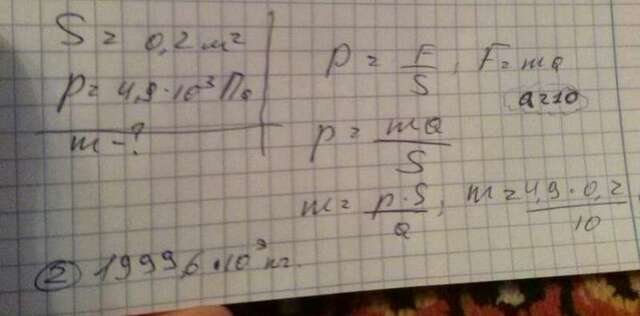 S = 0,2 м²
P = 4,9·10³ Па
m - ?
P = F/S, F = ma
a=10
p = ma/S
m = p·S/a, m = 4,9·0,2/10
② 1999,6·10⁹ кг.